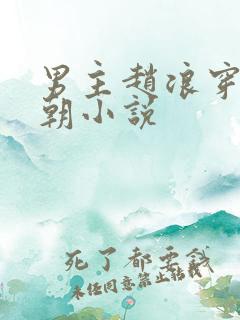 男主趙浪穿
朝小說
死了都要錢
未经同意禁止转载